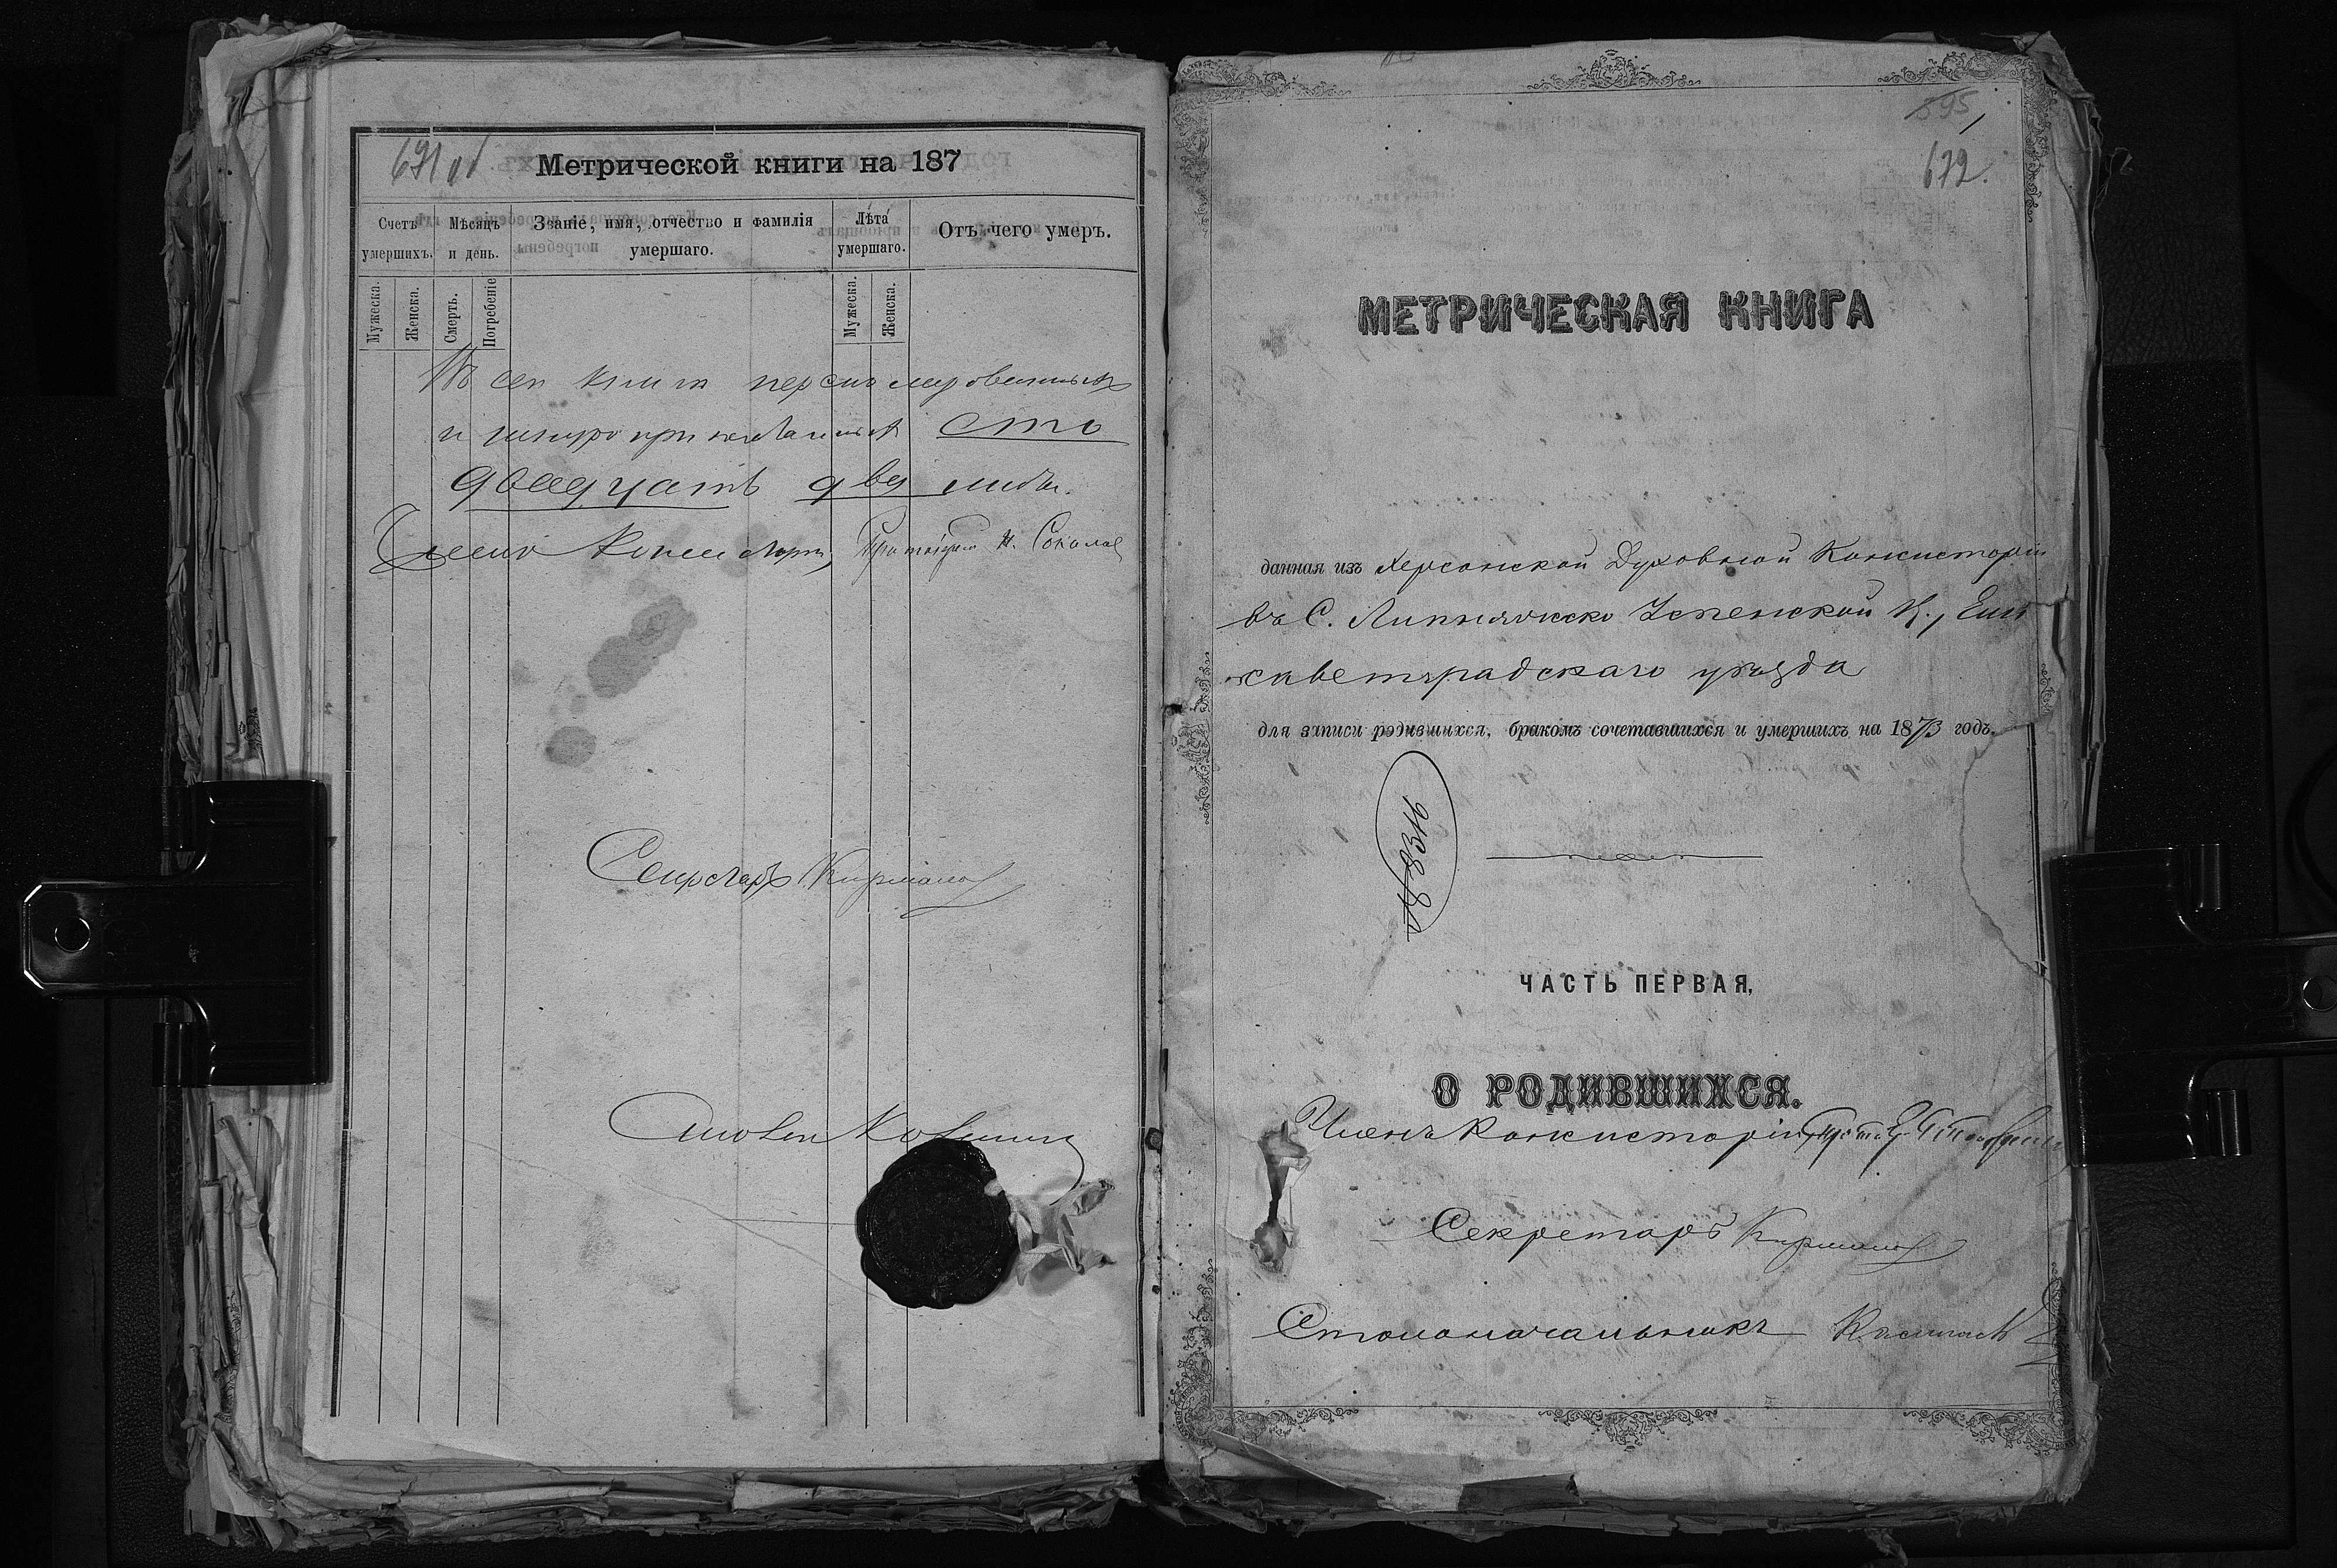 671 об
Метрической книги на 187
Счетъ умершихъ.
Мѣсяцъ и день.
Званіе, имя, отчество и фамилія умершаго.
Лѣта умершаго.
Отъ чего умеръ.
Мужеска.
Женска.
Смерть.
Погребеніе
Мужеска.
Женска.
Въ сей книгѣ перенумерованныхъ
и шнуроприпечатанныхъ сто
двадцать два листа.
Членъ Консисторіи, Протоіерей Н. Соколов
Секретарь Кирманов
895
672.
МЕТРИЧЕСКАЯ КНИГА
данная изъ Херсонской Духовной Консисторіи
въ С. Липняжско Успенской Ц., Ели
саветградскаго уѣзда
для записи родившихся, бракомъ сочетавшихся и умершихъ на 1873 годъ.
ЧАСТЬ ПЕРВАЯ,
О РОДИВШИХСЯ.
Членъ Консисторіи,
Секретарь Кирманов
Столоначальникъ